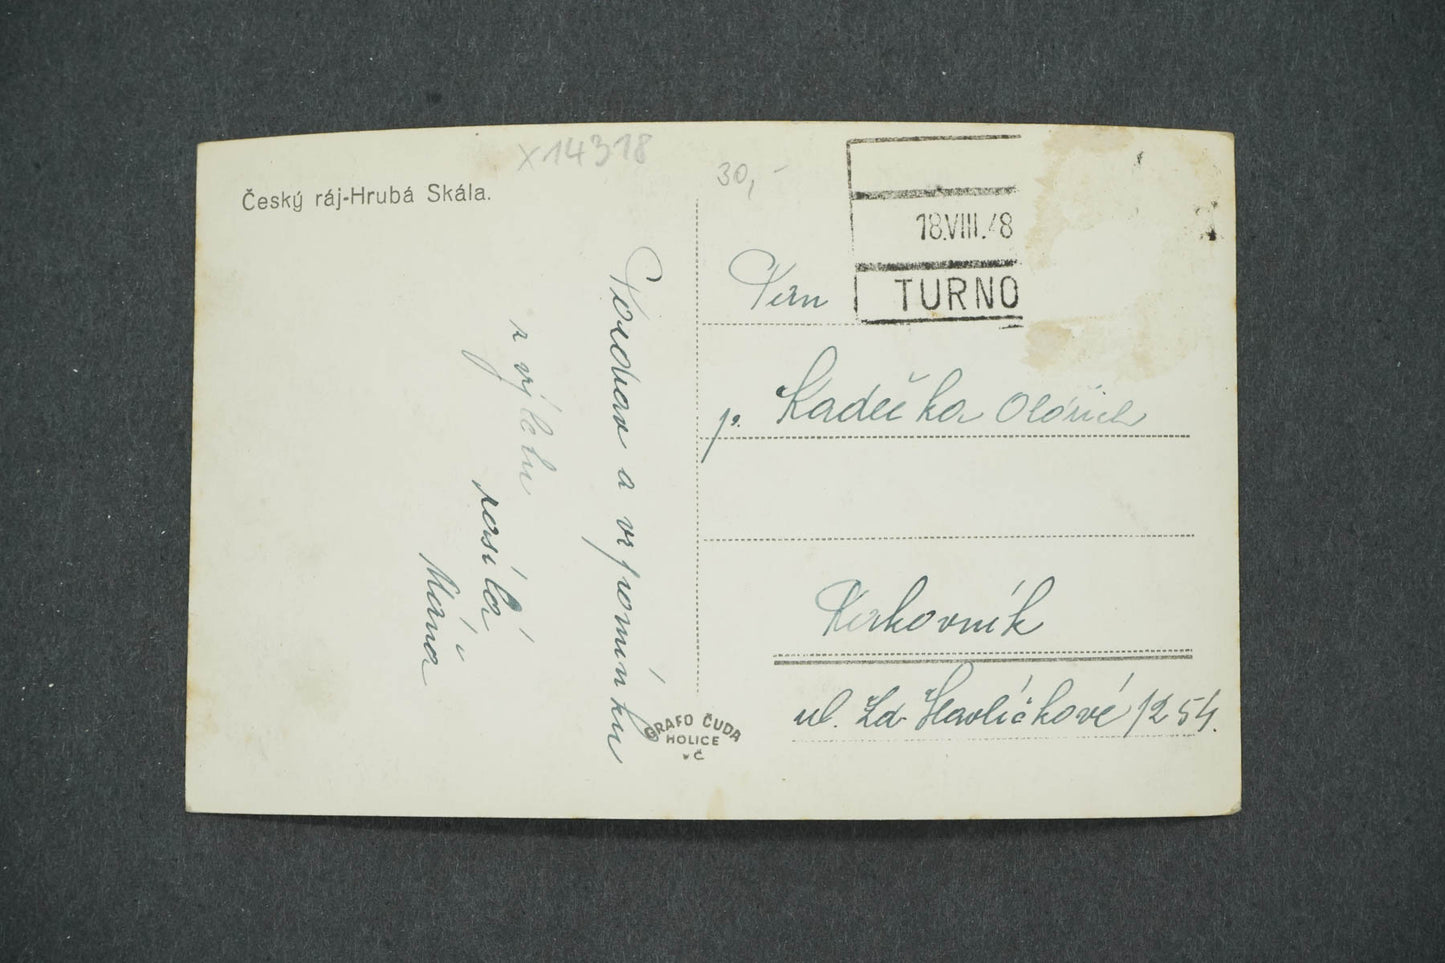 x14318
30,-
Český ráj-Hrubá Skála.
18.VIII.48
TURNO
Pozdrav a vzpomínku
z výletu
posílá
Máňa
Pan
p. Kadečka Oldřich
Rakovník
ul. Zd. Havlíčkové 1254.
GRAFO ČUDA
HOLICE
v Č